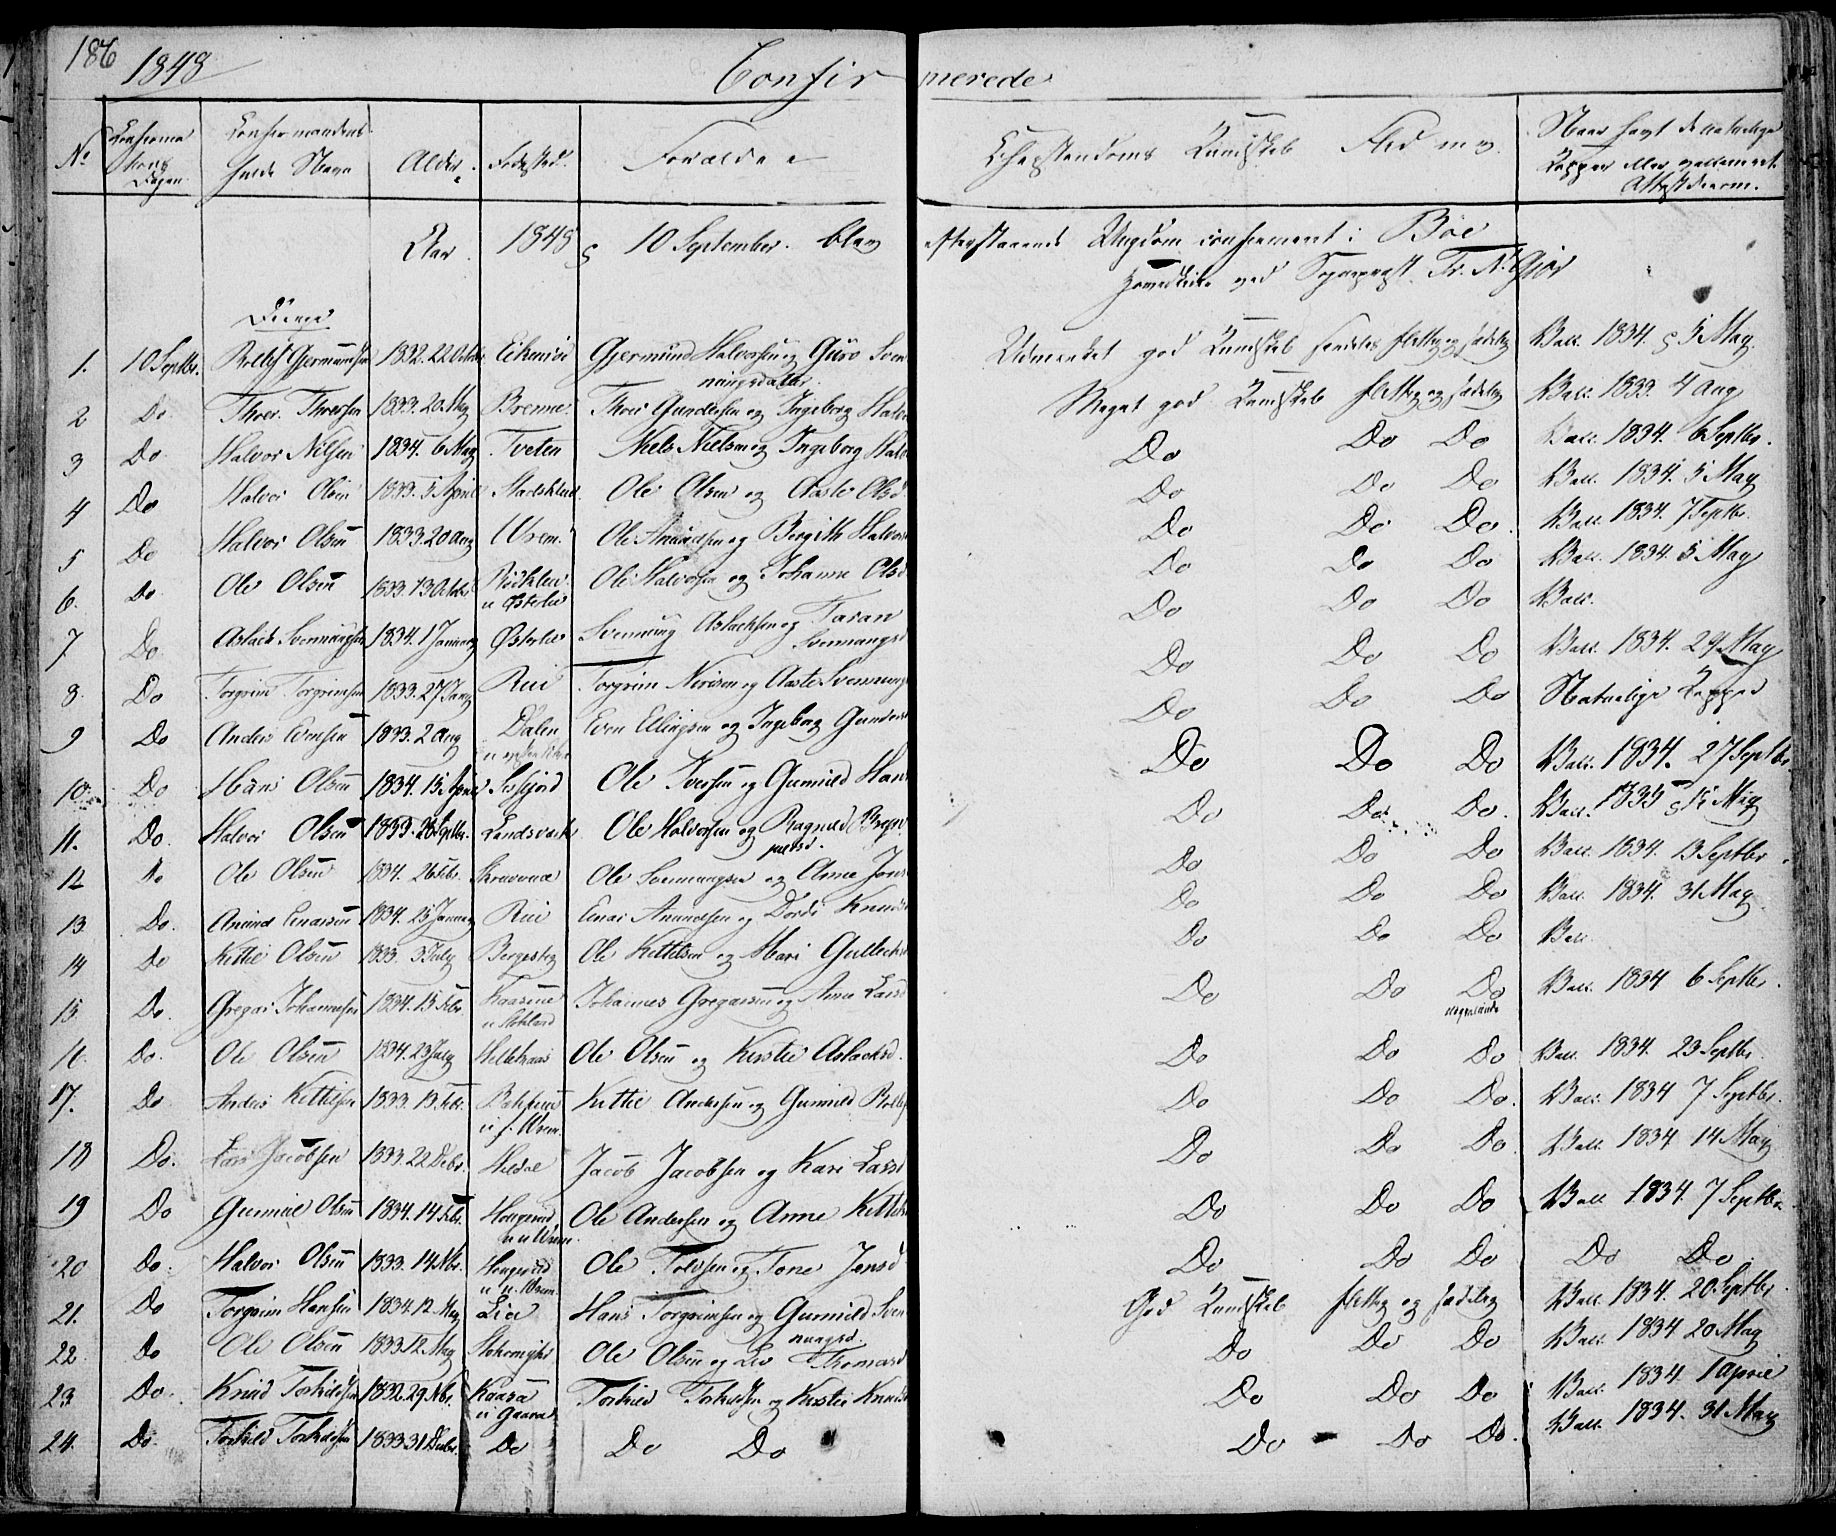 186
1848
Confirmerede
No Confirmations Dagen Confirmandens fulde Navn Alder Fødested Forældre Christendoms Kundskab Flid og Naar havt de naturlige Kopper eller vaccineret Attest derom.
Aar 1848 10 September blev efterstaaende Ungdom confirmeret i Bøe
Hovedkirke ved Sognepræst Fr. N. Gjør
Drenge
1. 10 Septbr. Rollef Gjermundsen 1832. 22 October Gjermund Halvorsen og Guro Svenningsdatter. Udmærket god Kundskab flittig og sædelig Vacc. 1834. 5 May
2 Do Thor Thorsen 1833. 20 May Brenne. Thor Gundersen og Ingeborg Halv Meget god Kundskab flittig og sædelig Vacc. 1833. 4 Aug
3 Do Halvor Nilsen 1834. 6 May Tveten Niels Nielsen og Ingeborg Halv Do Do Do Vacc. 1834. 6 Septbr.
4 Do Halvor Olsen 1833. 5 April Ole Olsen og Aaste Olsd Do Do Do Vacc. 1834. 5 May
5 Do Halvor Olsen 1833. 20 Aug Vrem. Ole Anundsen og Bergith Halvors Do Do Do. Vacc. 1834. 7 Septbr.
6. Do Ole Olsen 1833. 13 October u Østerlie Ole Halvorsen og Johanne Olsd Do Do Do Vacc. 1834. 5 May
7 Do Aslack Svenningsen 1834. 1 Januar Østerlie Svennung Aslacksen og Taran Svennungsd Do Do Do Vacc.
8 Do Torgrim Torgrimsen 1833. 27 Rui Torgrim og Aaste Svennungs Do Do Do Vacc. 1834. 29 May
9 Do Anders Evensen 1833. 2 Aug Dalen Even Ellingsen og Ingeborg Gunders Do Do Do Naturlige Kopper
10. Do Hans Olsen 1834. 15 April Ole Iversen og Gunild Hans Do Do Do Vacc. 1834. 27 Septbr.
11. Do. Halvor Olsen 1833. 26 Septbr. Landsverk Ole Halvorsen og Ragnild Do Do Do. Vacc. 1835 15 May
12 Do Ole Olsen 1834. 26 Febr. Ole Svennungsen og Anne Jons Do Do Do Vacc. 1834. 13 Septbr.
13 Do. Anund Einarsen 1834. 25 Januar Rui Einar Anundsen og Dorthe Knuds Do Do Do Vacc. 1834. 31 May
14 Do Kittil Olsen 1833. 3 July Ole Kittilsen og Mari Gullecks Do Do Do Vacc.
15 Do. Gregar Johannesen 1834. 15 Febr. Kaasene Johannes Gregarsen og Anne Larsd Do Do Do Vacc. 1834 6 Septbr.
16. Do. Ole Olsen 1834. 23 July Ole Olsen og Kirstie Aslacksd. Do Do Do Vacc. 1834. 23 Septbr.
17. Do Anders Kittilsen 1833. 15 Febr. Kittil Andersen og Gunild Rollefs Do Do Do. Vacc. 1834 7 Septbr.
18 Do. Lars Jacobsen 1833. 22 Debr. Heldal Jacob Jacobsen og Kari Larsd Do Do Do Vacc. 1834 14 May
19 Do Gunnul Olsen 1834. 14 Febr. u Vrem Ole Andersen og Anne Kittils Do Do Do Vacc 1834. 7 Septbr.
20 Do. Halvor Olsen 1833. 14 Nbr. u Vrem Ole Tolvsen og Tone Jensd Do Do Do Do Do
21. Do Torgrim Hansen 1834. 12. May Lie Hans Torgrimsen og Gunild Svennungsd. God Kundskab flittig og sædelig Vacc. 1834. 20 Septbr.
22. Do Ole Olsen 1833 12. May Ole Olsen og Liv Thomasd Do Do Do Vacc. 1834 20 May
23 Do. Knud Torkildsen 1832. 29 Nbr. Kaasa u Gaara Torkild Torkildsen og Kirstie Knuds Do Do Do Vacc. 1834. 1 April
24. Do. Torkild Torkildsen 1833 31 Decbr. Do Do Do Do Do Do. Vacc. 1834. 31 May